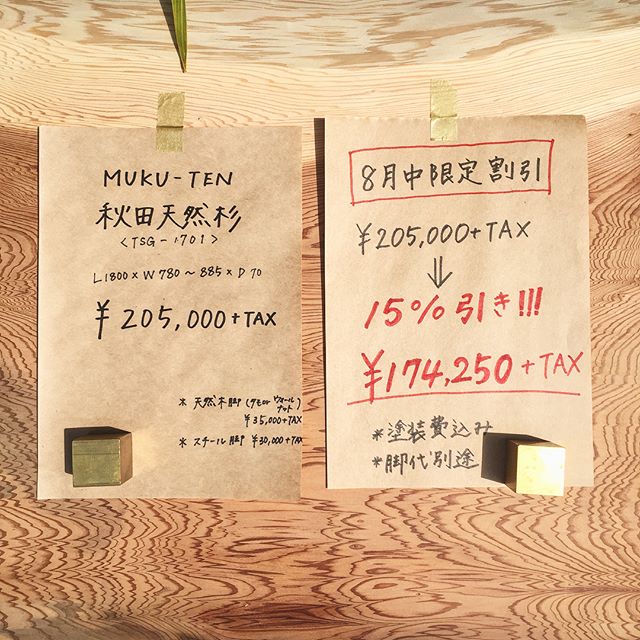 MUKU-TEN
秋田天然杉
<TSG-1701>
L1800×W780〜885×D70
¥205,000+TAX
* 天然木脚(タモorウォールナット)
¥35,000+TAX
* スチール脚 ¥30,000+TAX
8月中限定割引
¥205,000+TAX
⇓
15%引き!!!
¥174,250+TAX
*塗装費込み
*脚代別途